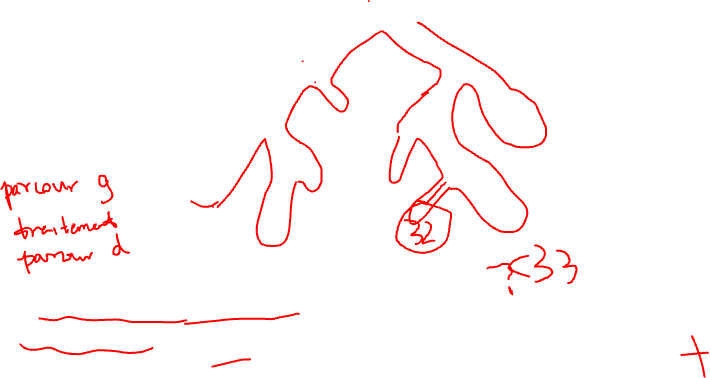 parcour g
traitement
parcour d
32
<33
+